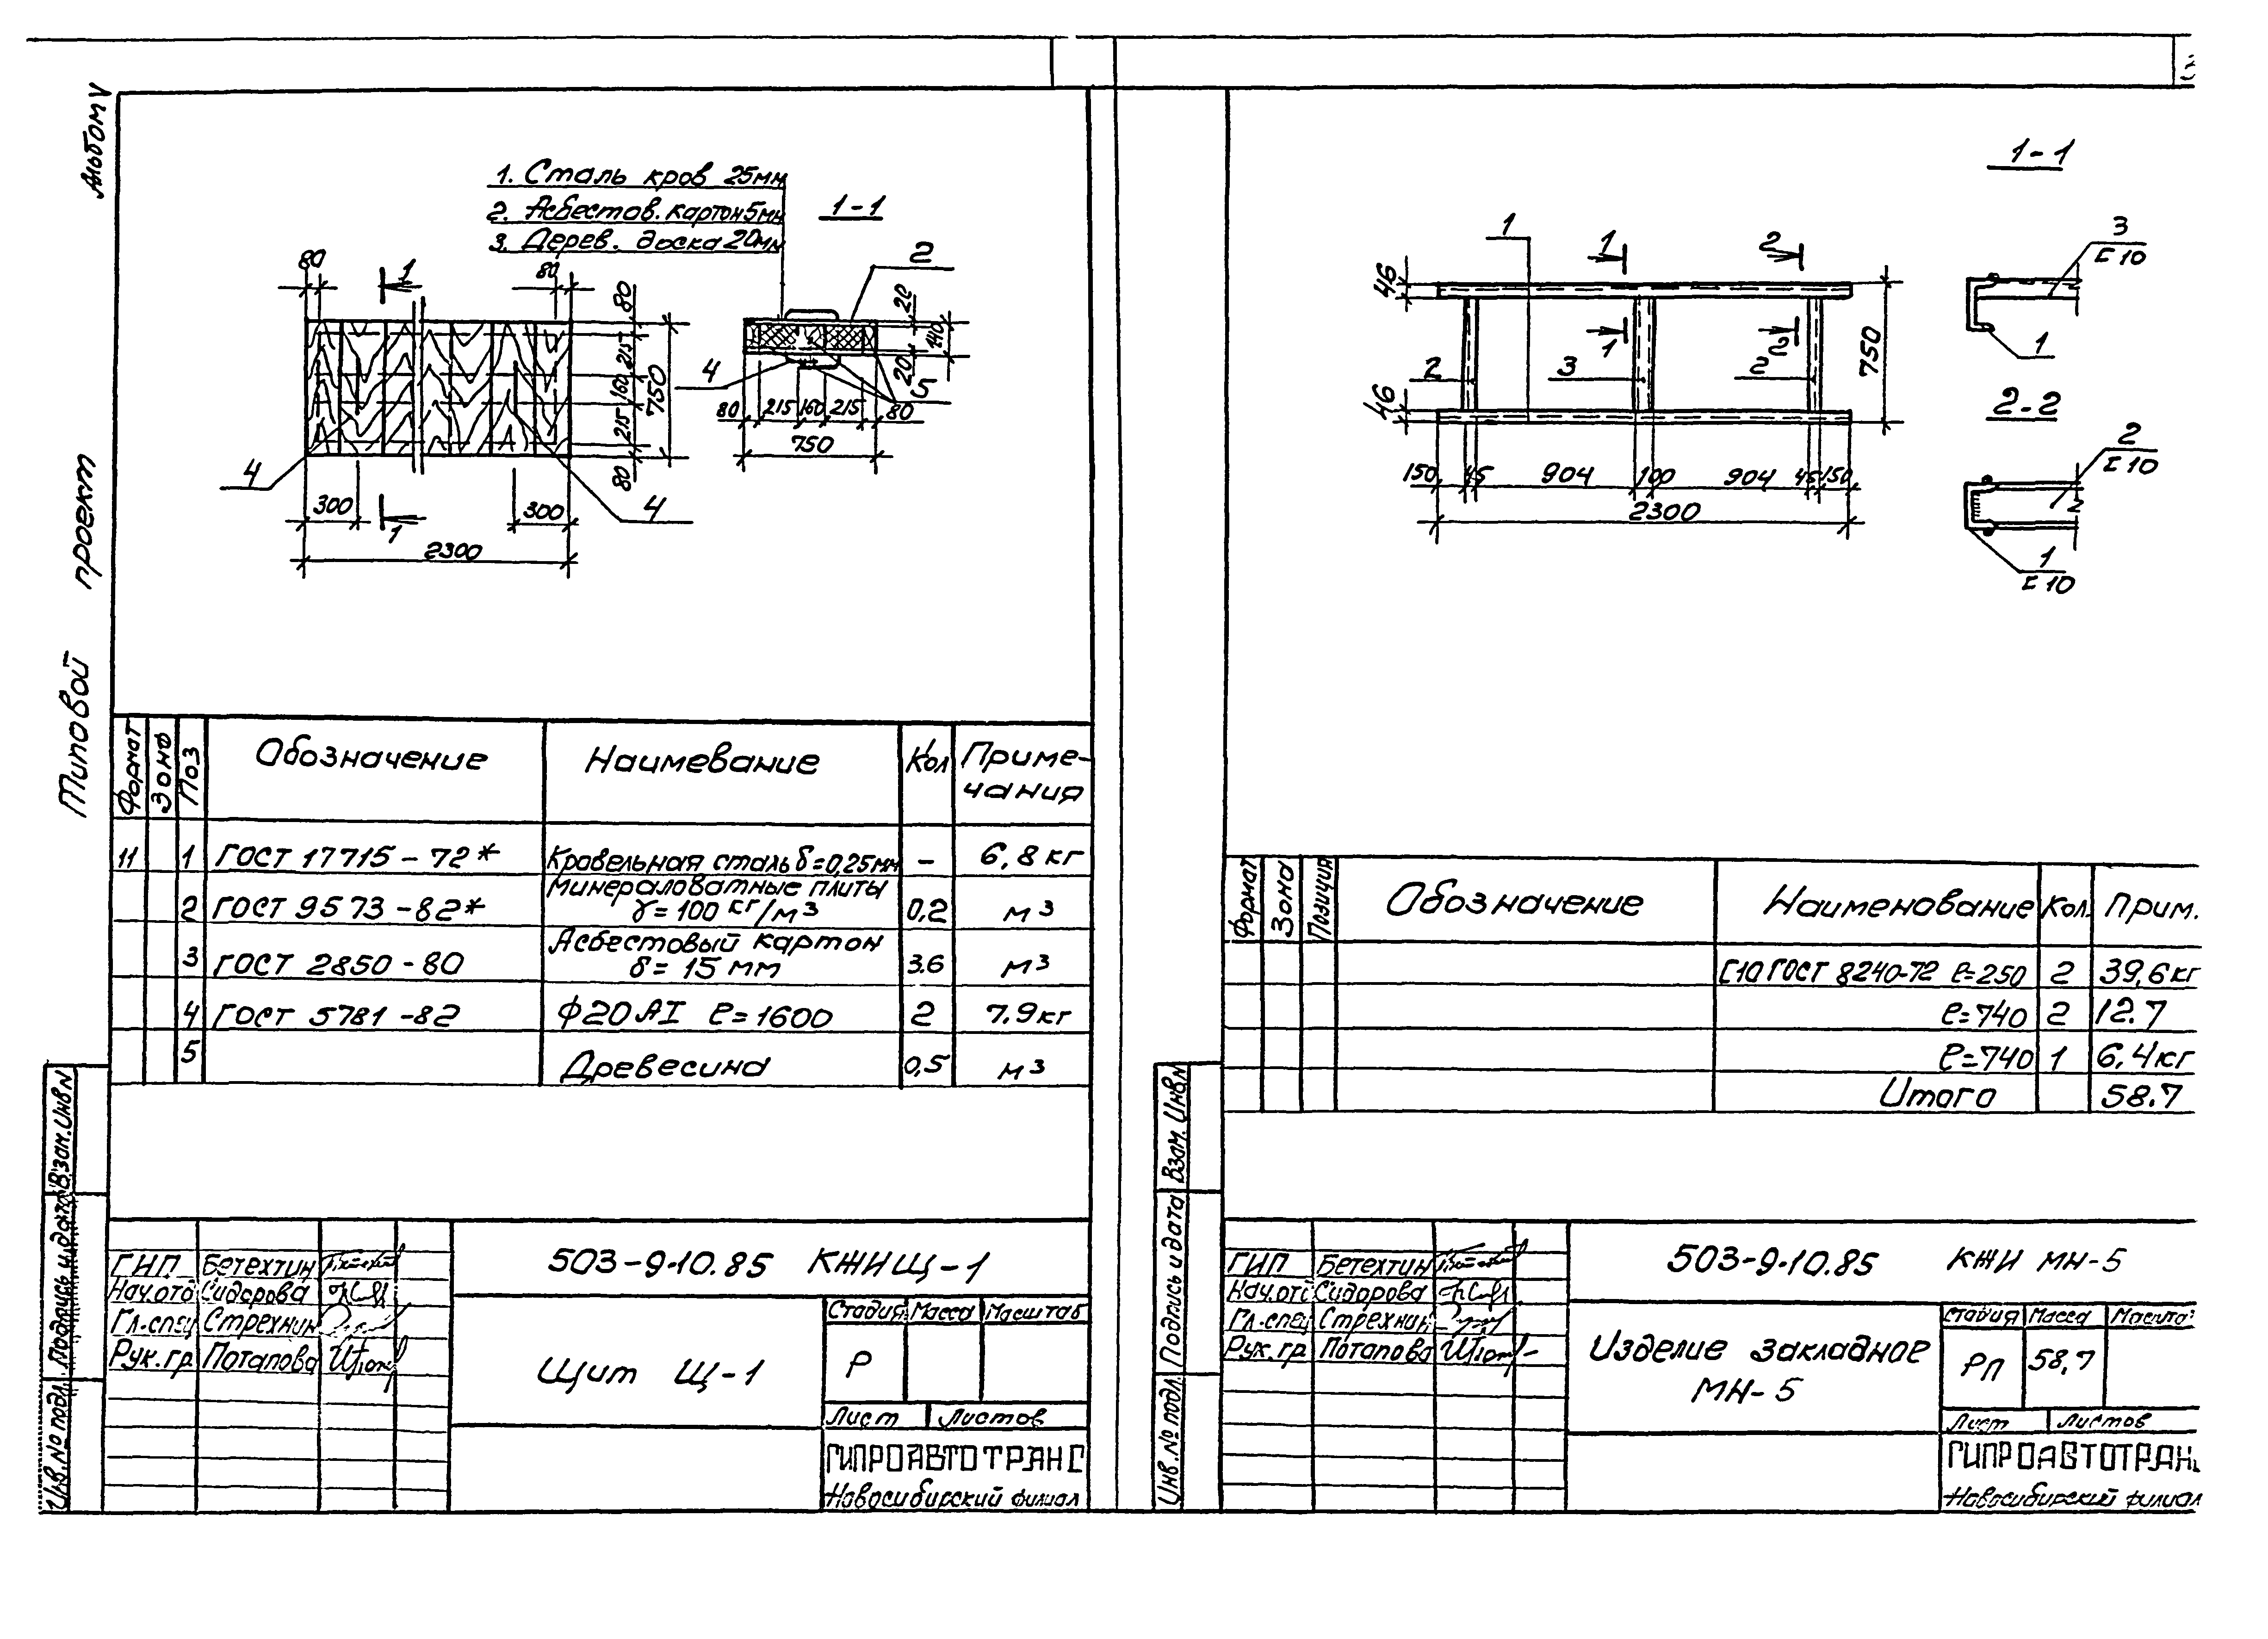 Альбом V
Типовой проект
1. Сталь кров 25мм
2. Асбестов. картон 5мм
3. Дерев. доска 20мм
1-1
80
1
80
80
215
160
215
80
750
4
300
1
300
4
2300
2
20
140
20
4
5
80 215 160 215 80
750
Формат Зона Поз Обозначение Наимевание Кол Приме-
чания
11 1 ГОСТ 17715-72* Кровельная сталь δ=0,25мм - 6,8 кг
2 ГОСТ 9573-82* Минераловатные плиты
γ=100 кг/м³ 0,2 м³
3 ГОСТ 2850-80 Асбестовый картон
δ=15 мм 3.6 м³
4 ГОСТ 5781-82 ϕ20 АI ℓ=1600 2 7.9кг
5 Древесина 0,5 м³
Взам.Инв.N
Подпись и дата
Инв.№ подл.
ГИП Бетехтин
Нач.отд Сидорова
Гл.спец Стрехнин
Рук.гр. Потапова
503-9-10.85 КЖИ Щ-1
Щит Щ-1
Стадия Масса Масштаб
Р
Лист Листов
ГИПРОАВТОТРАНС
Новосибирский филиал
1-1
1
1
2
3
[10
46
1
2
750
1
2 3 2
46
2-2
2
[10
150 45 904 100 904 45 150
2300
1
[10
Формат Зона Позиция Обозначение Наименование Кол. Прим.
[10 ГОСТ 8240-72 ℓ=250 2 39,6кг
ℓ=740 2 12.7
ℓ=740 1 6,4кг
Итого 58.7
Взам. Инв.N
Подпись и дата
Инв.№ подл.
ГИП Бетехтин
Нач.отд Сидорова
Гл.спец Стрехнин
Рук.гр Потапова
503-9-10.85 КЖИ МН-5
Изделие закладное
МН-5
Стадия Масса
РП 58,7
Лист Листов
ГИПРОАВТОТРАН
Новосибирский филиал